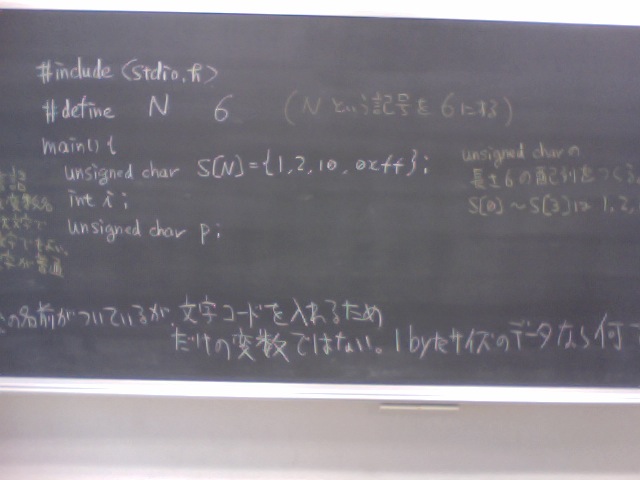 #include <stdio.h>
#define N 6 (Nという記号を6にする)
main() {
unsigned char S[N]={1,2,10,0xff};
int i;
unsigned char p;
unsigned charの
長さ6の配列をつくる
S[0]~S[3]は 1,2,
の名前がついているが、文字コードを入れるため
だけの変数ではない。1byteサイズのデータなら何で